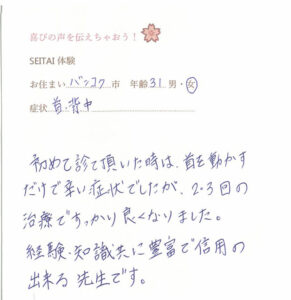 喜びの声を伝えちゃおう！
SEITAI 体験
お住まい バンコク 市 年齢 31 男・女
症状 首・背中
初めて診て頂いた時は、首を動かす
だけで辛い症状でしたが、2・3回の
治療ですっかり良くなりました。
経験・知識共に豊富で信用の
出来る先生です。